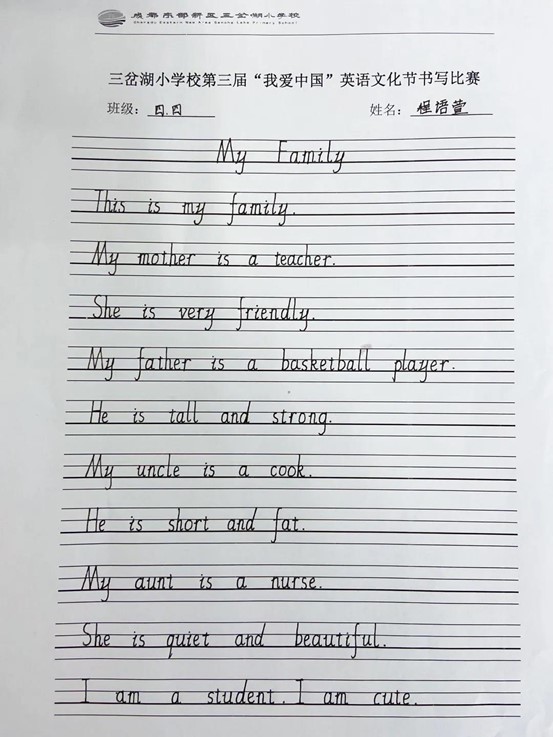 成都东部新区三岔湖小学校
Chengdu Eastern New Area Sancha Lake Primary School
三岔湖小学校第三届“我爱中国”英语文化节书写比赛
班级：四.四 姓名：程语萱
My Family
This is my family.
My mother is a teacher.
She is very friendly.
My father is a basketball player.
He is tall and strong.
My uncle is a cook.
He is short and fat.
My aunt is a nurse.
She is quiet and beautiful.
I am a student. I am cute.